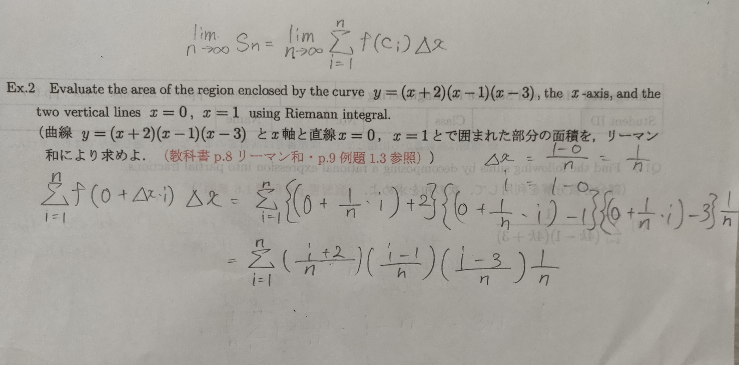 lim n→∞ Sn = lim n→∞ n Σ i=1 f(ci) Δx
Ex.2 Evaluate the area of the region enclosed by the curve y = (x + 2)(x − 1)(x − 3), the x-axis, and the
two vertical lines x = 0, x = 1 using Riemann integral.
(曲線 y = (x + 2)(x − 1)(x − 3) とx軸と直線x = 0, x = 1とで囲まれた部分の面積を, リーマン
和により求めよ. (教科書 p.8 リーマン和・p.9 例題 1.3 参照))
Δx = 1−0/n = 1/n
n Σ i=1 f(0 + Δx·i) Δx = n Σ i=1 {(0 + 1/n · i) + 2}{(0 + 1/n · i) − 1}{(0 + 1/n · i) − 3} 1/n
= n Σ i=1 (i+2/n)(i−1/n)(i−3/n) 1/n